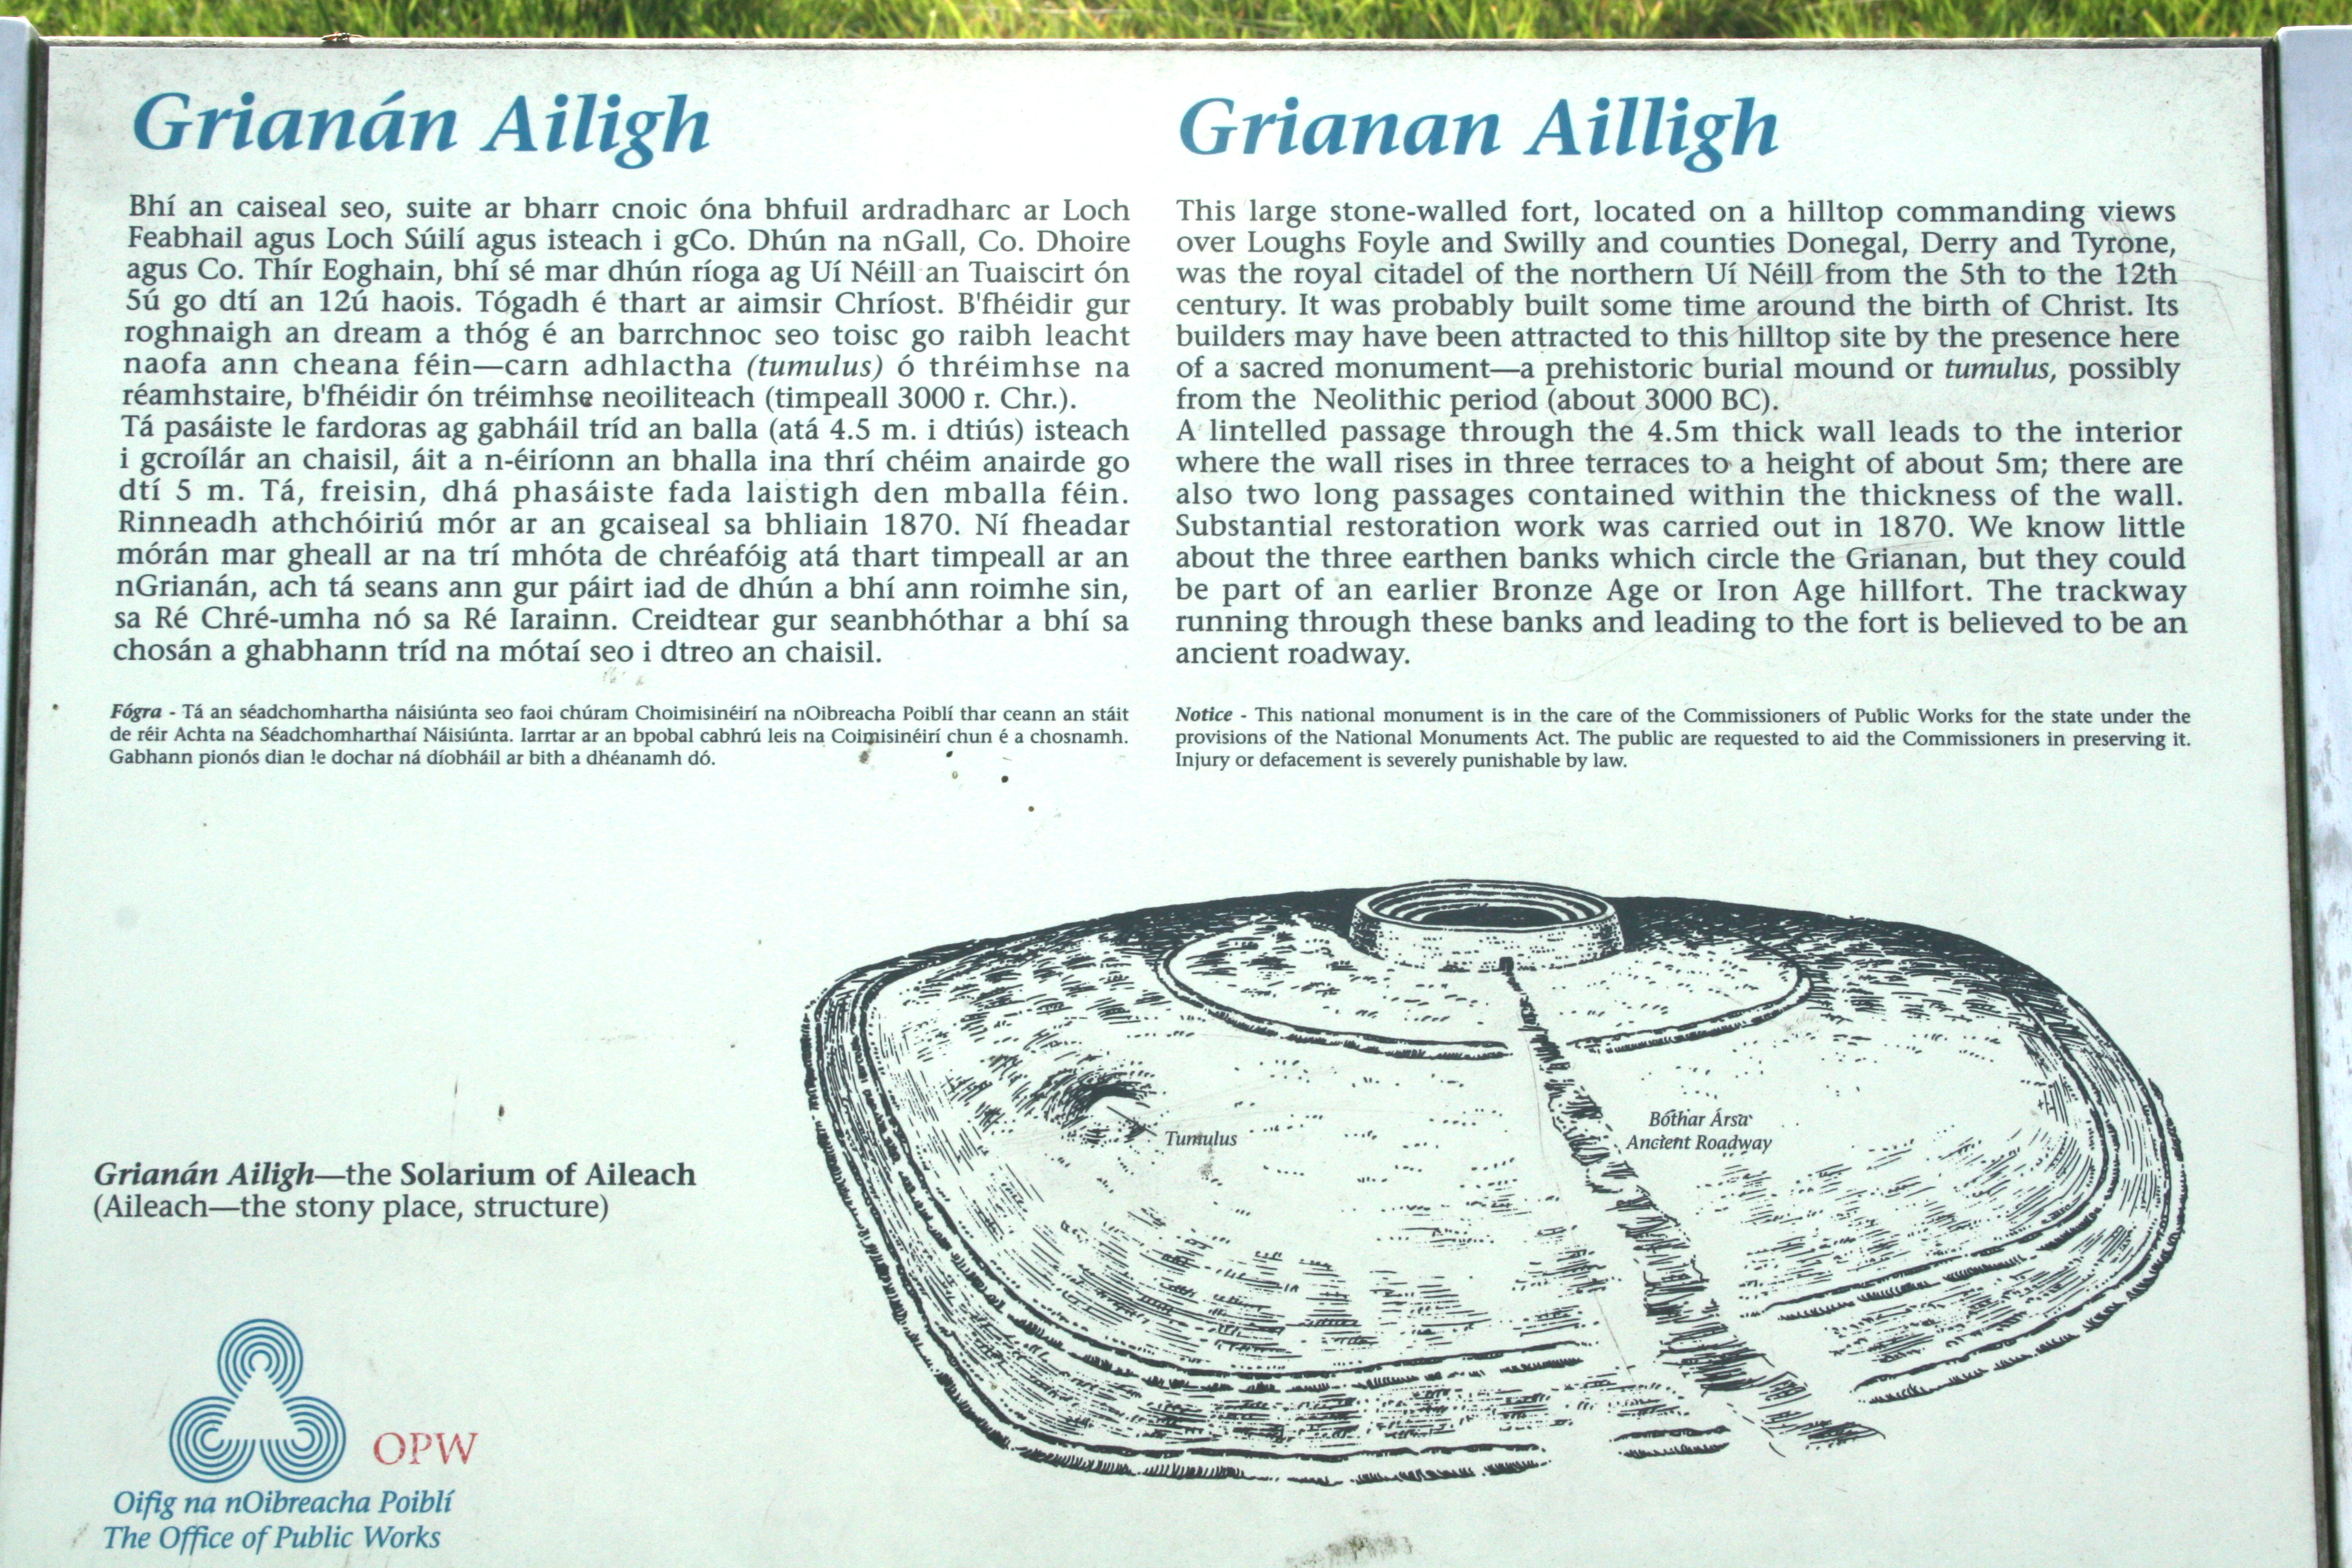 Grianán Ailigh
Bhí an caiseal seo, suite ar bharr cnoic óna bhfuil ardradharc ar Loch
Feabhail agus Loch Súilí agus isteach i gCo. Dhún na nGall, Co. Dhoire
agus Co. Thír Eoghain, bhí sé mar dhún ríoga ag Uí Néill an Tuaiscirt ón
5ú go dtí an 12ú haois. Tógadh é thart ar aimsir Chríost. B'fhéidir gur
roghnaigh an dream a thóg é an barrchnoc seo toisc go raibh leacht
naofa ann cheana féin—carn adhlactha (tumulus) ó thréimhse na
réamhstaire, b'fhéidir ón tréimhse neoiliteach (timpeall 3000 r. Chr.).
Tá pasáiste le fardoras ag gabháil tríd an balla (atá 4.5 m. i dtiús) isteach
i gcroílár an chaisil, áit a n-éiríonn an bhalla ina thrí chéim anairde go
dtí 5 m. Tá, freisin, dhá phasáiste fada laistigh den mballa féin.
Rinneadh athchóiriú mór ar an gcaiseal sa bhliain 1870. Ní fheadar
mórán mar gheall ar na trí mhóta de chréafóig atá thart timpeall ar an
nGrianán, ach tá seans ann gur páirt iad de dhún a bhí ann roimhe sin,
sa Ré Chré-umha nó sa Ré Iarainn. Creidtear gur seanbhóthar a bhí sa
chosán a ghabhann tríd na mótaí seo i dtreo an chaisil.
Fógra - Tá an séadchomhartha náisiúnta seo faoi chúram Choimisinéirí na nOibreacha Poiblí thar ceann an stáit
de réir Achta na Séadchomharthaí Náisiúnta. Iarrtar ar an bpobal cabhrú leis na Coimisinéirí chun é a chosnamh.
Gabhann pionós dian le dochar ná díobháil ar bith a dhéanamh dó.
Grianan Ailligh
This large stone-walled fort, located on a hilltop commanding views
over Loughs Foyle and Swilly and counties Donegal, Derry and Tyrone,
was the royal citadel of the northern Uí Néill from the 5th to the 12th
century. It was probably built some time around the birth of Christ. Its
builders may have been attracted to this hilltop site by the presence here
of a sacred monument—a prehistoric burial mound or tumulus, possibly
from the Neolithic period (about 3000 BC).
A lintelled passage through the 4.5m thick wall leads to the interior
where the wall rises in three terraces to a height of about 5m; there are
also two long passages contained within the thickness of the wall.
Substantial restoration work was carried out in 1870. We know little
about the three earthen banks which circle the Grianan, but they could
be part of an earlier Bronze Age or Iron Age hillfort. The trackway
running through these banks and leading to the fort is believed to be an
ancient roadway.
Notice - This national monument is in the care of the Commissioners of Public Works for the state under the
provisions of the National Monuments Act. The public are requested to aid the Commissioners in preserving it.
Injury or defacement is severely punishable by law.
Tumulus
Bóthar Ársa
Ancient Roadway
Grianán Ailigh—the Solarium of Aileach
(Aileach—the stony place, structure)
OPW
Oifig na nOibreacha Poiblí
The Office of Public Works